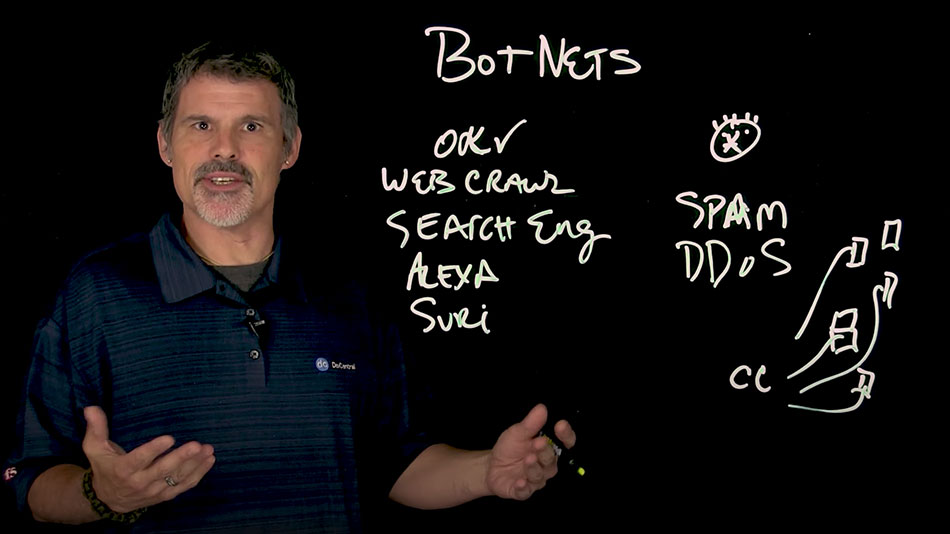 BotNETS
OK ✓
WEB CRAWL
SEARCH Eng
ALEXA
SURi
SPAM
DDoS
CC
dc DevCentral
f5